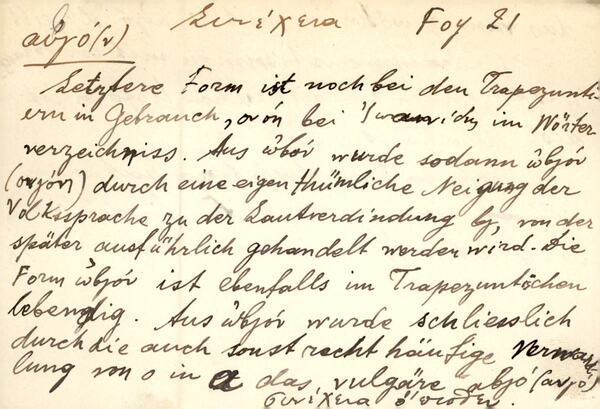 Συνέχεια Foy 21
αὐγό(ν)
Letztere Form ist noch bei den Trapezunti-
ern in Gebrauch, ὀvόν bei Ἰωαννίδης im Wörter-
verzeichniss. Aus ὠbόν wurde sodann ὠbjόν
(ὀvjόν) durch eine eigenthümliche Neigung der
Volkssprache zu der Lautverdindung bj, von der
später ausführlich gehandelt werden wird. Die
Form ὠbjόν ist ebenfalls im Trapezuntischen
lebendig. Aus ὠbjόν wurde schliesslich
durch die auch sonst recht häufige Verwand-
lung von o in a das vulgäre abjό (avjό)
Συνέχεια ὄπισθεν